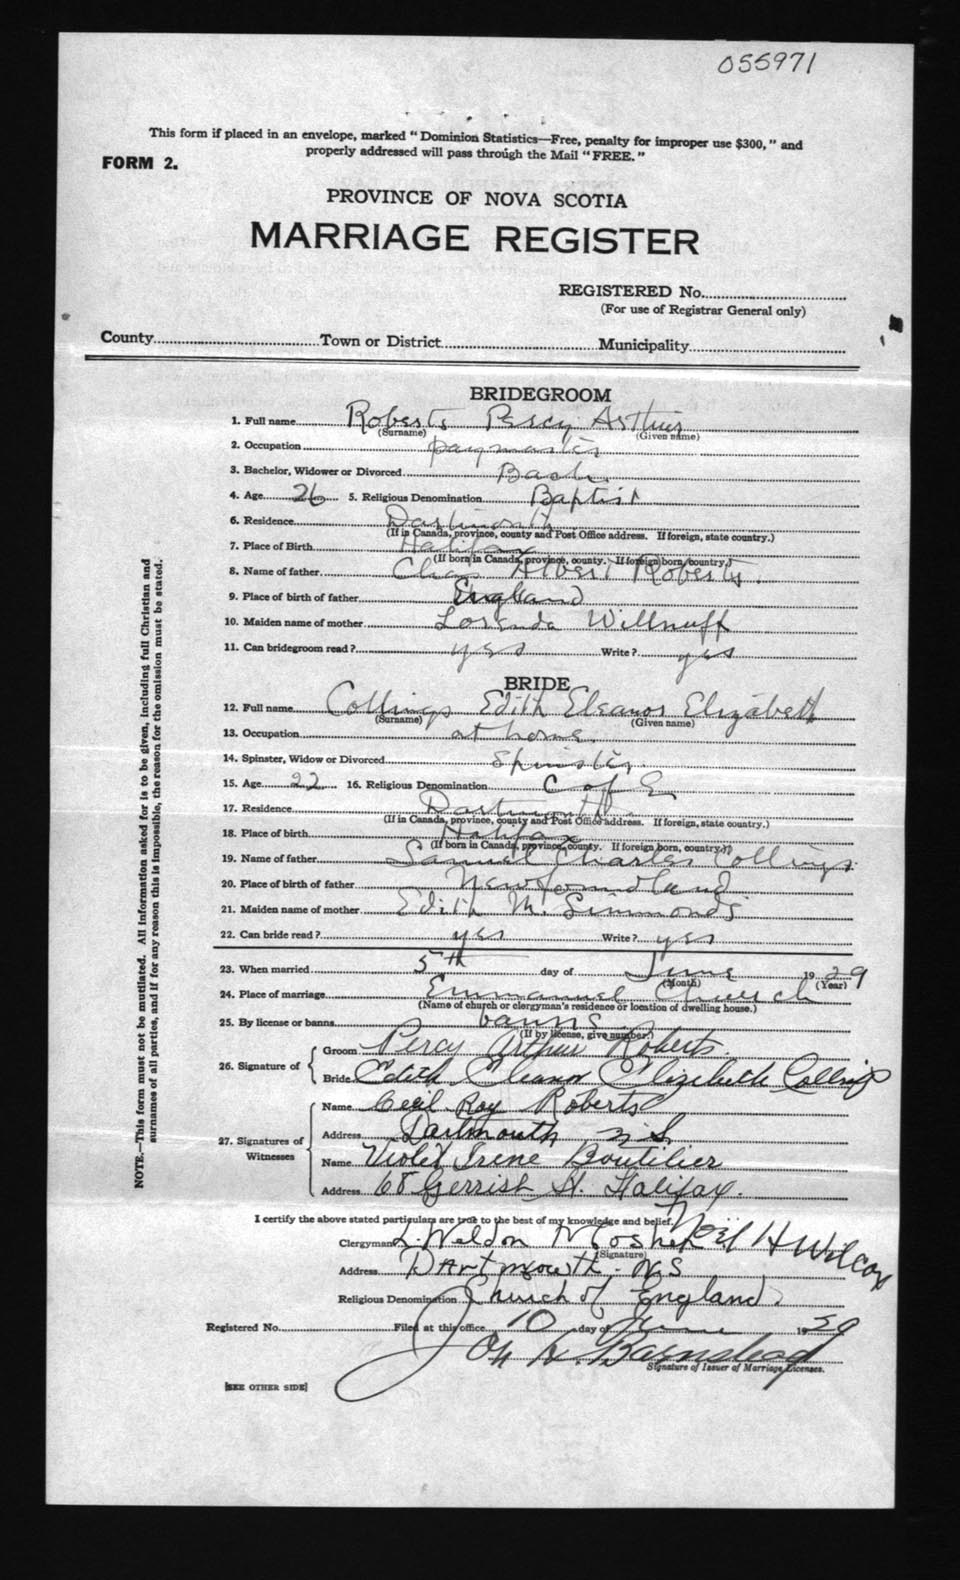 055971
This form if placed in an envelope, marked "Dominion Statistics—Free, penalty for improper use $300," and
properly addressed will pass through the Mail "FREE."
FORM 2.
PROVINCE OF NOVA SCOTIA
MARRIAGE REGISTER
REGISTERED No.
(For use of Registrar General only)
County Town or District Municipality
NOTE.—This form must not be mutilated. All information asked for is to be given, including full Christian and
surnames of all parties, and if for any reason this is impossible, the reason for the omission must be stated.
BRIDEGROOM
1. Full name Roberts Percy Arthur
(Surname) (Given name)
2. Occupation paymaster
3. Bachelor, Widower or Divorced Bach.
4. Age 26 5. Religious Denomination Baptist
6. Residence Dartmouth
(If in Canada, province, county and Post Office address. If foreign, state country.)
7. Place of Birth Halifax
(If born in Canada, province, county. If foreign born, country.)
8. Name of father Chas Albert Roberts.
9. Place of birth of father England
10. Maiden name of mother Lorenda Willnuff
11. Can bridegroom read? yes Write? yes
BRIDE
12. Full name Collings Edith Eleanor Elizabeth
(Surname) (Given name)
13. Occupation at home.
14. Spinster, Widow or Divorced Spinster.
15. Age 22 16. Religious Denomination C of E
17. Residence Dartmouth
(If in Canada, province, county and Post Office address. If foreign, state country.)
18. Place of birth Halifax
(If born in Canada, province, county. If foreign born, country.)
19. Name of father Samuel Charles Collings.
20. Place of birth of father Newfoundland
21. Maiden name of mother Edith M. Simmonds
22. Can bride read? yes Write? yes
23. When married 5th day of June 1929
(Month) (Year)
24. Place of marriage Emmanuel Church
(Name of church or clergyman's residence or location of dwelling house.)
25. By license or banns banns
(If by license, give number.)
26. Signature of Groom Percy Arthur Roberts.
Bride Edith Eleanor Elizebeth Collings
27. Signatures of Witnesses Name Cecil Roy Roberts
Address Dartmouth N.S.
Name Violet Irene Boutilier
Address 68 Gerrish St. Halifax.
I certify the above stated particulars are true to the best of my knowledge and belief.
Clergyman L. Weldon Mosher Noel H Wilcox
(Signature)
Address Dartmouth - N.S
Religious Denomination Church of England.
Registered No. Filed at this office 10 day of June 1929
Barnstead
Signature of Issuer of Marriage Licenses.
[SEE OTHER SIDE]